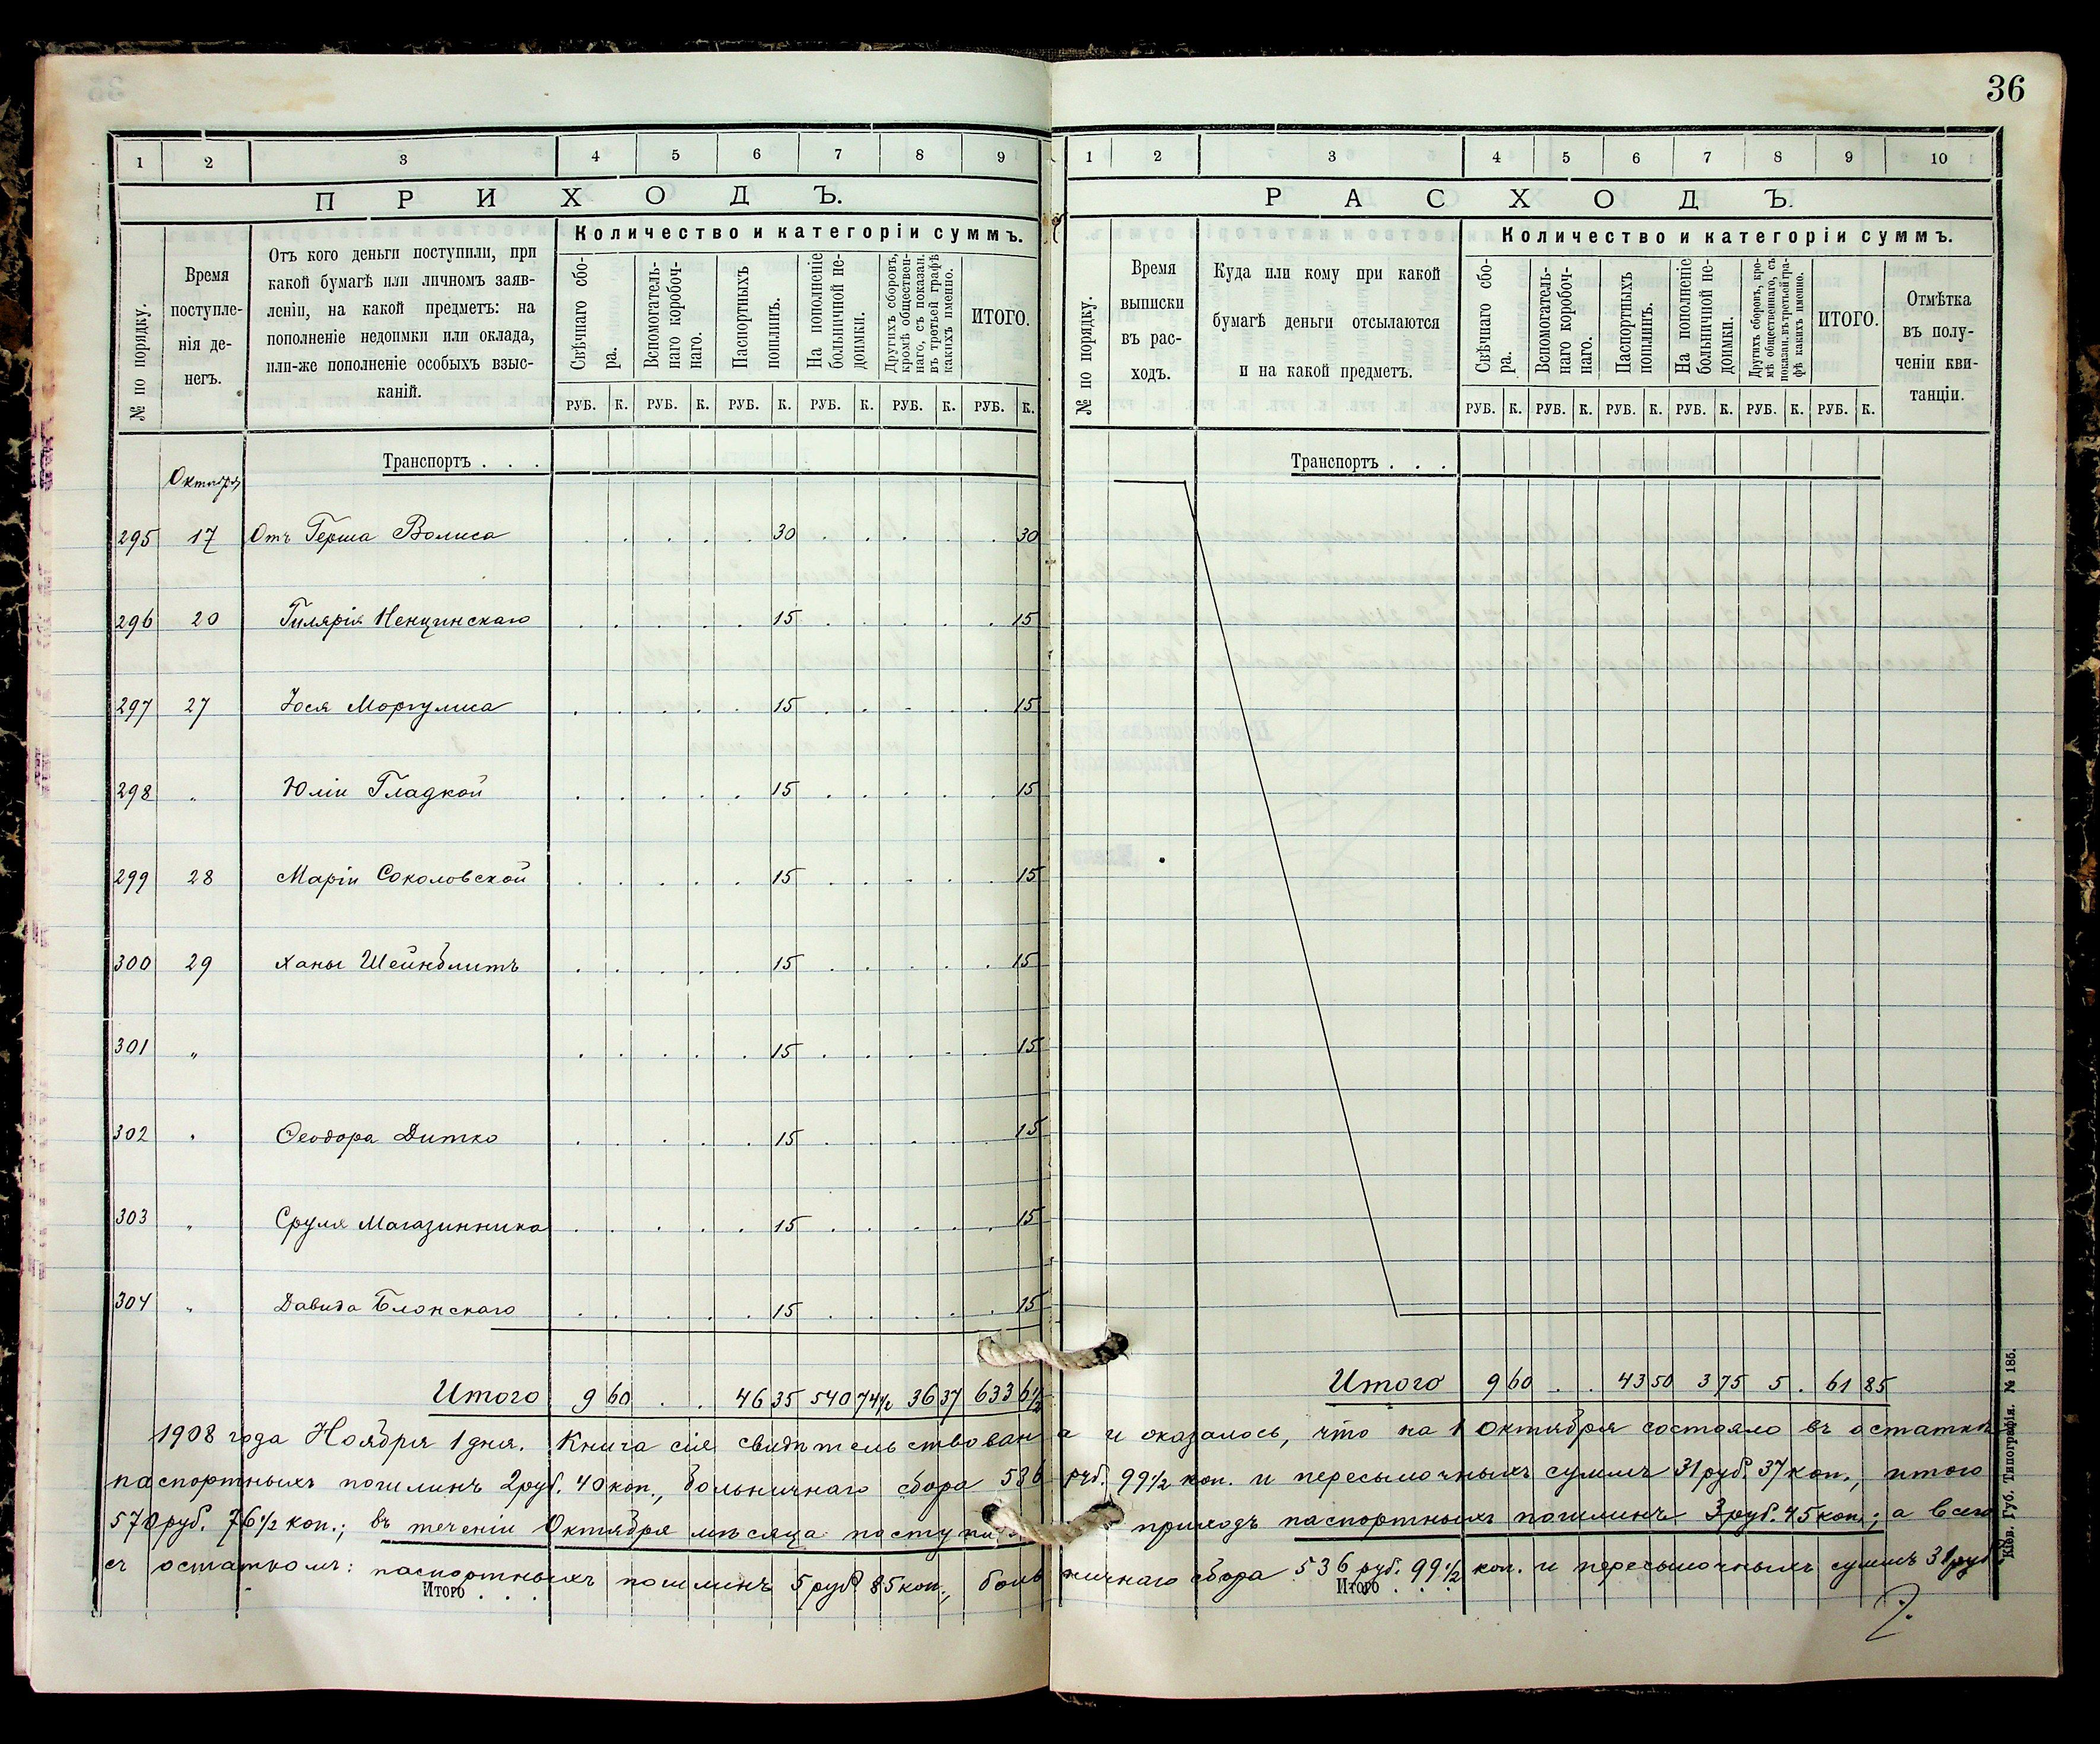 36
1 2 3 4 5 6 7 8 9
ПРИХОДЪ.
№ по порядку.
Время поступле-
нія де-
негъ.
Отъ кого деньги поступили, при
какой бумагѣ или личномъ заяв-
леніи, на какой предметъ: на
пополненіе недоимки или оклада,
или-же пополненіе особыхъ взыс-
каній.
Количество и категоріи суммъ.
Свѣчнаго сбо-
ра.
Вспомогатель-
наго коробоч-
наго.
Паспортныхъ
пошлинъ.
На пополненіе
больничной не-
доимки.
Другихъ сборовъ,
кромѣ обществен-
наго, съ показан.
въ третьей графѣ
какихъ именно.
ИТОГО.
РУБ. К. РУБ. К. РУБ. К. РУБ. К. РУБ. К. РУБ. К.
Транспортъ . . .
Октября
295 17 Отъ Герша Волиса 30 30
296 20 Гилярія Ненцинскаго 15 15
297 27 Іося Моргулиса 15 15
298 " Юліи Гладкой 15 15
299 28 Маріи Соколовской 15 15
300 29 Ханы Шейнблитъ 15 15
301 " 15 15
302 " Ѳеодора Дитко 15 15
303 " Сруля Магазинника 15 15
304 " Давида Блонскаго 15 15
Итого 9 60 . . 46 35 540 74½ 36 37 633 6½
1 2 3 4 5 6 7 8 9 10
РАСХОДЪ.
№ по порядку.
Время
выписки
въ рас-
ходъ.
Куда или кому при какой
бумагѣ деньги отсылаются
и на какой предметъ.
Количество и категоріи суммъ.
Свѣчнаго сбо-
ра.
Вспомогатель-
наго коробоч-
наго.
Паспортныхъ
пошлинъ.
На пополненіе
больничной не-
доимки.
Другихъ сборовъ, кро-
мѣ общественнаго, съ
показан. въ третьей гра-
фѣ какихъ именно.
ИТОГО.
Отмѣтка
въ полу-
ченіи кви-
танціи.
РУБ. К. РУБ. К. РУБ. К. РУБ. К. РУБ. К. РУБ. К.
Транспортъ . . .
Итого 9 60 . . 43 50 3 75 5 . 61 85
1908 года Ноября 1 дня. Книга сія свидѣтельствована и оказалось, что на 1 Октября состояло въ остаткѣ
паспортныхъ пошлинъ 2 руб. 40 коп., больничнаго сбора 536 руб. 99½ коп. и пересылочныхъ суммъ 31 руб. 37 коп., итого
570 руб. 76½ коп.; въ теченіи Октября мѣсяца поступило приходъ паспортныхъ пошлинъ 3 руб. 45 коп.; а всего
съ остаткомъ: паспортныхъ пошлинъ 5 руб. 85 коп., больничнаго сбора 536 руб. 99½ коп. и пересылочныхъ суммъ 31 руб.
Итого . . .
Итого . . .
Кіев. Губ. Типографія. № 185.